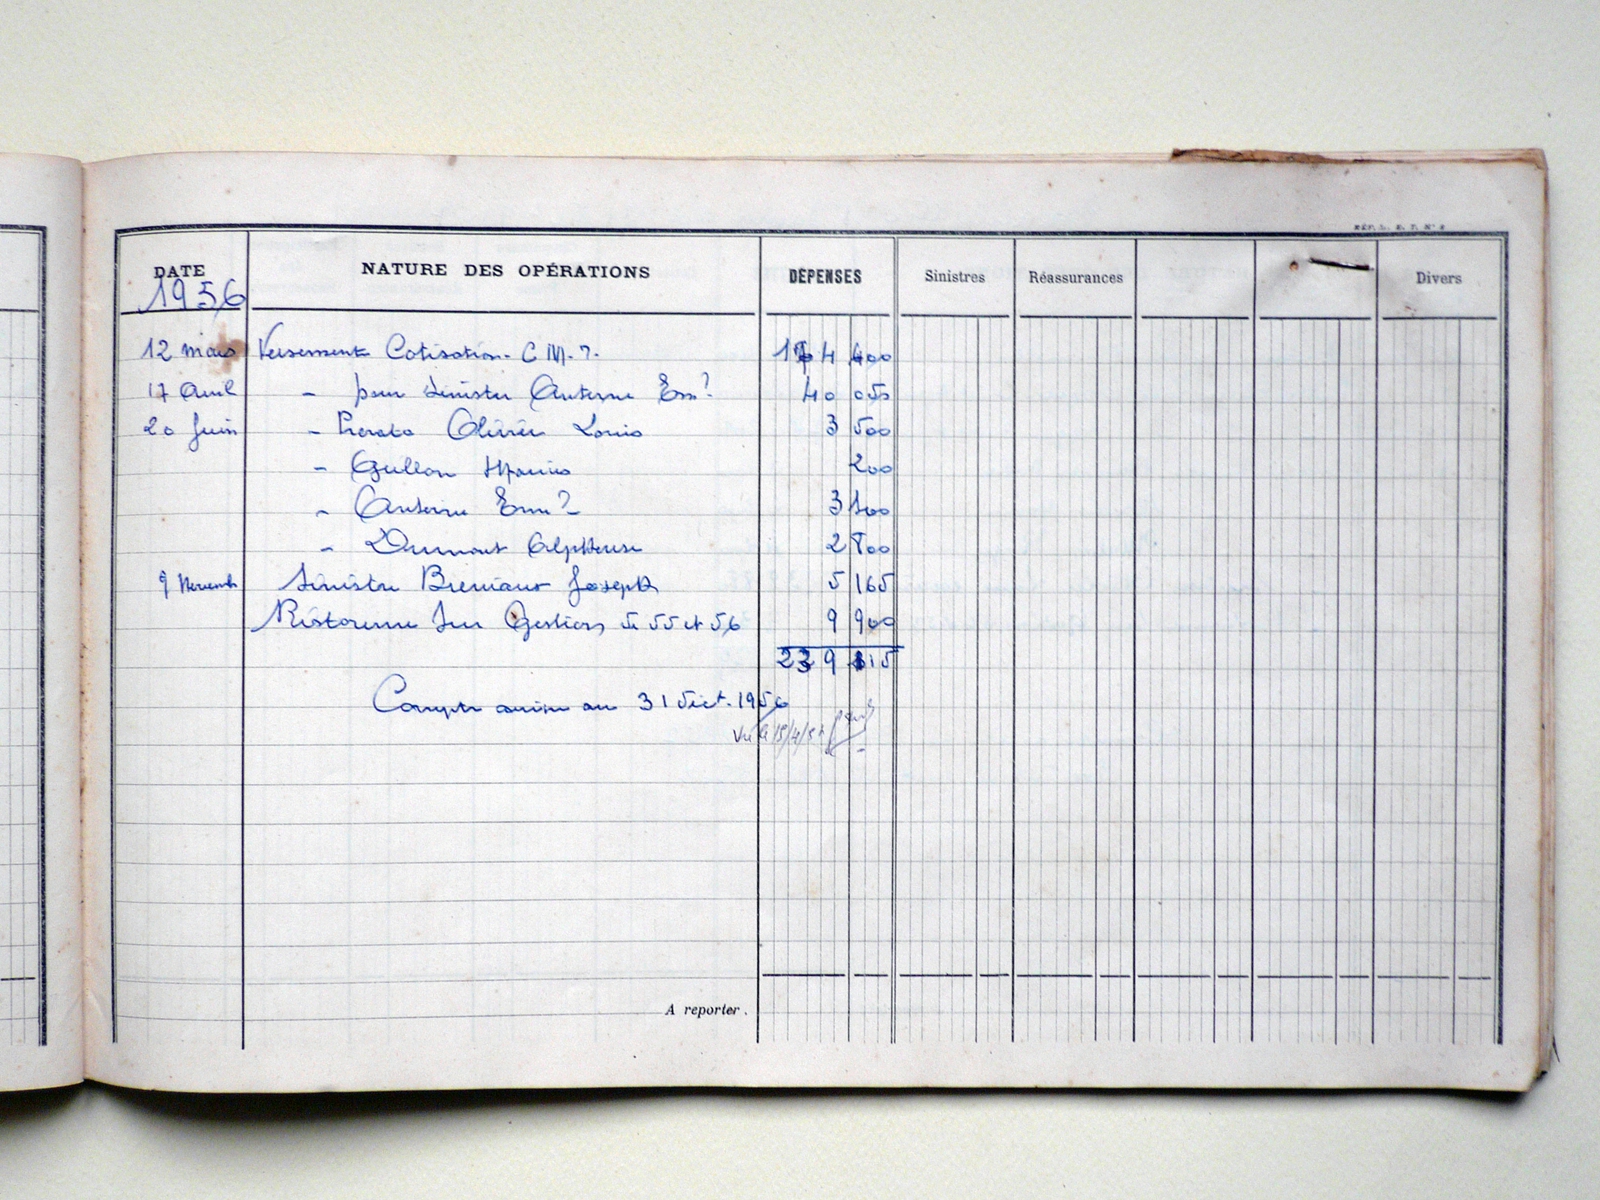 RÉP. L. E. T. N° 2
DATE NATURE DES OPÉRATIONS DÉPENSES Sinistres Réassurances Divers
1956
12 mars Versements Cotisation C.M. 400
17 Avril - pour Sinistre Antoine Em? 40 050
20 Juin - Prorata Olivier Louis 3 500
- Gullon 200
- Antoine Em? 3
- Dumont Alphonse 2 800
9 Novemb Sinistre Breniaux Joseph 5 165
Ristourne sur Gestions de 55 et 56 9 900
239
Compte arrêté au 31 Déct. 1956
Vu le 15/4/57
A reporter.